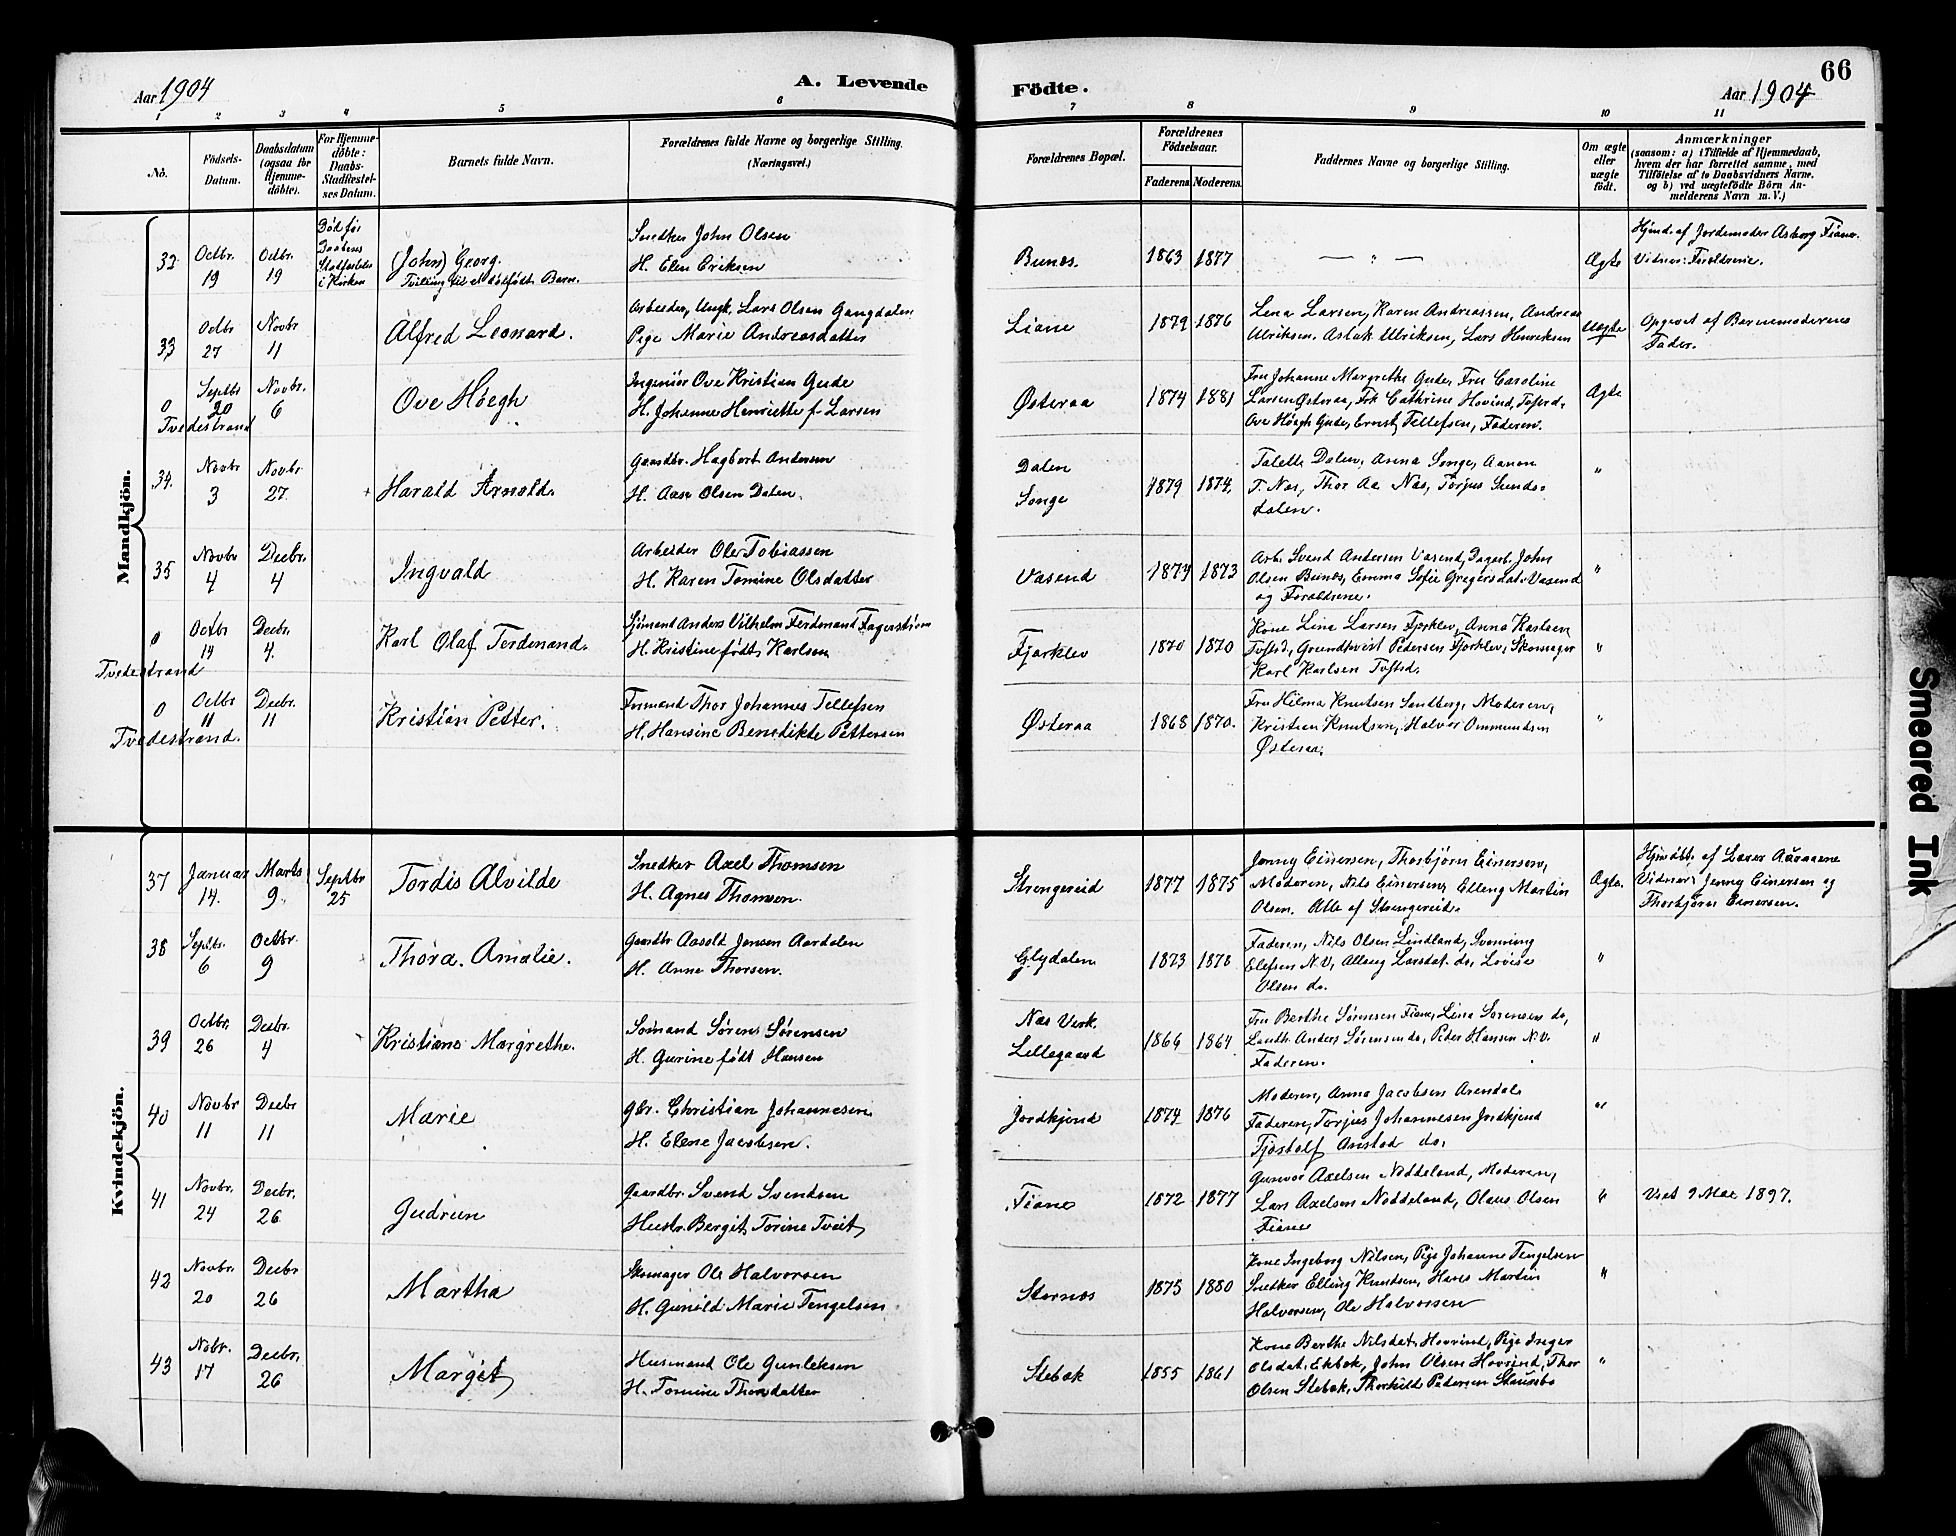 Aar 1904
A. Levende
Födte.
66
Aar 1904
1 2 3 4 5 6 7 8 9 10 11
No.
Födsels-
Datum.
Daabsdatum
(ogsaa for
Hjemme-
döbte).
For Hjemme-
döbte:
Daabs-
Stadfæstel-
ses Datum.
Barnets fulde Navn.
Forældrenes fulde Navne og borgerlige Stilling.
(Næringsvei.)
Forældrenes Bopæl.
Forældrenes
Födselsaar.
Faderens.
Moderens.
Faddernes Navne og borgerlige Stilling.
Om ægte
eller
uægte
födt.
Anmærkninger
(saasom: a) i Tilfælde af Hjemmedaab,
hvem der har forrettet samme, med
Tilföielse af to Daabsvidners Navne,
og b) ved uægtefödte Börn An-
melderens Navn m. V.)
Mandkjön.
32
Octbr.
19
Octbr.
19
Död før
Daabens
Stadfæstelse
i Kirken
(John) Georg.
Tvilling til et dödfödt Barn.
Snedker John Olsen
H. Elen Eriksen
Bunes.
1863
1877
— " —
Ægte
Hjmd. af Jordemoder Asborg Fiane.
Vidner: Forældrene.
33
Octbr
27
Novbr
11
Alfred Leonard.
Arbeider, Ungk. Lars Olsen Gangdalen
Pige Marie Andreasdatter
Liane
1879
1876
Lena Larsen, Karen Andreassen, Andreas
Ulriksen. Aslak Ulriksen, Lars Henriksen
Uægte
Opgivet af Barnemoderens
Fader.
0
Tvedestrand
Septbr
20
Novbr.
6
Ove Höegh
Ingeniør Ove Kristian Gude
H. Johanne Henriette f. Larsen
Østeraa
1874
1881
Fru Johanne Margrethe Gude, Fru Caroline
Larsen Østeraa, Frk Cathrine Hovind, Tvestrd.
Ove Höegh Gude, Ernst Tellefsen, Faderen.
Ægte
34.
Novbr
3
Novbr.
27.
+ Harald Arnold.
Gaardbr. Hagbart Andersen
H. Aase Olsen Dalen.
Dalen
Songe
1879
1874.
Talette Dalen, Anna Songe, Aanon
T. Næs, Thor Aa Næs, Torjus Sunds-
dalen.
"
35
Novbr
4
Decbr.
4
Ingvald
Arbeider Ole Tobiassen
H. Karen Tomine Olsdatter
Vasend
1874
1873
Arb. Svend Andersen Vasend, Dagarb. John
Olsen Bunes, Emma Sofie Gregersdat. Vasend
og Forældrene.
"
0
Tvedestrand
Octbr
14
Decbr.
4.
Karl Olaf Ferdinand.
Sjömand Anders Vilhelm Ferdinand Fagerström
H. Kristine födt Karlsen
Fjærklev
1870
1870
Kone Lina Larsen Fjærklev, Anna Karlsen
Tvstrd., Grundtvist Pedersen Fjærklev, Skomager
Karl Karlsen Tvstrd.
"
0
Tvedestrand.
Octbr
11
Decbr.
11
Kristian Petter.
Formand Thor Johannes Tellefsen
H. Hansine Benedikte Pettersen
Østeraa
1868
1870.
Fru Hilma Knutsen Sandberg, Moderen,
Kristian Knutsen, Halvor Ommundsen
Østeraa.
"
Kvindekjön.
37
Januar
14.
Marts
9.
Septbr
25
Tordis Alvilde
Snedker Axel Thomsen
H. Agnes Thomsen.
Strengereid
1877
1875
Jenny Einersen, Thorbjörn Einersen,
Moderen, Nils Einersen, Elling Martin
Olsen. Alle af Strengereid.
Ægte.
Hjmdöbt af Lærer Aasmene
Vidner: Jenny Einersen og
Thorbjörn Einersen.
38
Septbr.
6
Octbr.
9
Thora Amalie.
Gaardbr Aasold Jensen Aardalen
H. Anne Thorsen.
Glydalen
1873
1878
Faderen, Nils Olsen Lindland, Svenning
Elefsen N.V., Allaug Larsdat. do, Lovise
Olsen do.
"
39
Octbr.
26
Decbr.
4
Kristiane Margrethe.
Sömand Sören Sörensen
H. Gurine födt Hansen
Næs Verk.
Lillegaard
1866
1864
Fru Berthe Sörensen Fiane, Lina Sörensen do,
Landh. Anders Sörensen do, Peder Hansen N.V.
Faderen.
"
40
Novbr
11
Decbr
11
Marie
Gbr. Christian Johannesen
H. Elene Jacobsen.
Jordkjend
1874
1876
Moderen, Anna Jacobsen Arendal
Faderen, Torjus Johannesen Jordkjend
Tjostolf Anstad do.
"
41
Novbr.
24
Decbr.
26
Gudrun
Gaardbr. Svend Svendsen
Hustr. Bergit Torine Tveit
Fiane
1872
1877
Gunvor Axelsen Noddeland, Moderen,
Lars Axelsen Noddeland, Olaus Olsen
Fiane
"
Viet 9 Mai 1897.
42
Novbr.
20
Decbr
26
Martha
Skomager Ole Halvorsen
H. Gunild Marie Tengelsen
Stornæs
1875
1880
Kone Ingeborg Nilsen, Pige Johanne Tengelsen
Snedker Elling Knudsen, Hans Martin
Halvorsen, Ole Halvorsen
"
43
Nobr.
17
Decbr.
26
Margit
Husmand Ole Gunleksen
H. Tomine Thorsdatter
Stebok
1855
1861
Kone Berthe Nilsdat. Hovind, Pige Inger
Olsdat. Ekbok, John Olsen Hovind, Thor
Olsen Stebok, Thorkild Pedersen Stausbo
"
Smeared Ink